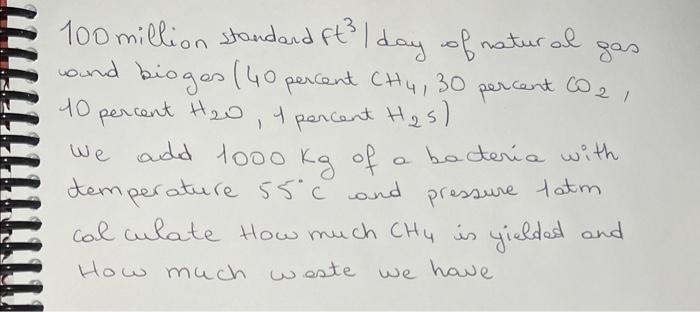 100 million standard ft³/day of natural gas
and biogas (40 percent CH₄, 30 percent CO₂,
10 percent H₂O, 1 percent H₂S)
We add 1000 Kg of a bacteria with
temperature 55°C and pressure 1atm
calculate How much CH₄ is yielded and
How much waste we have